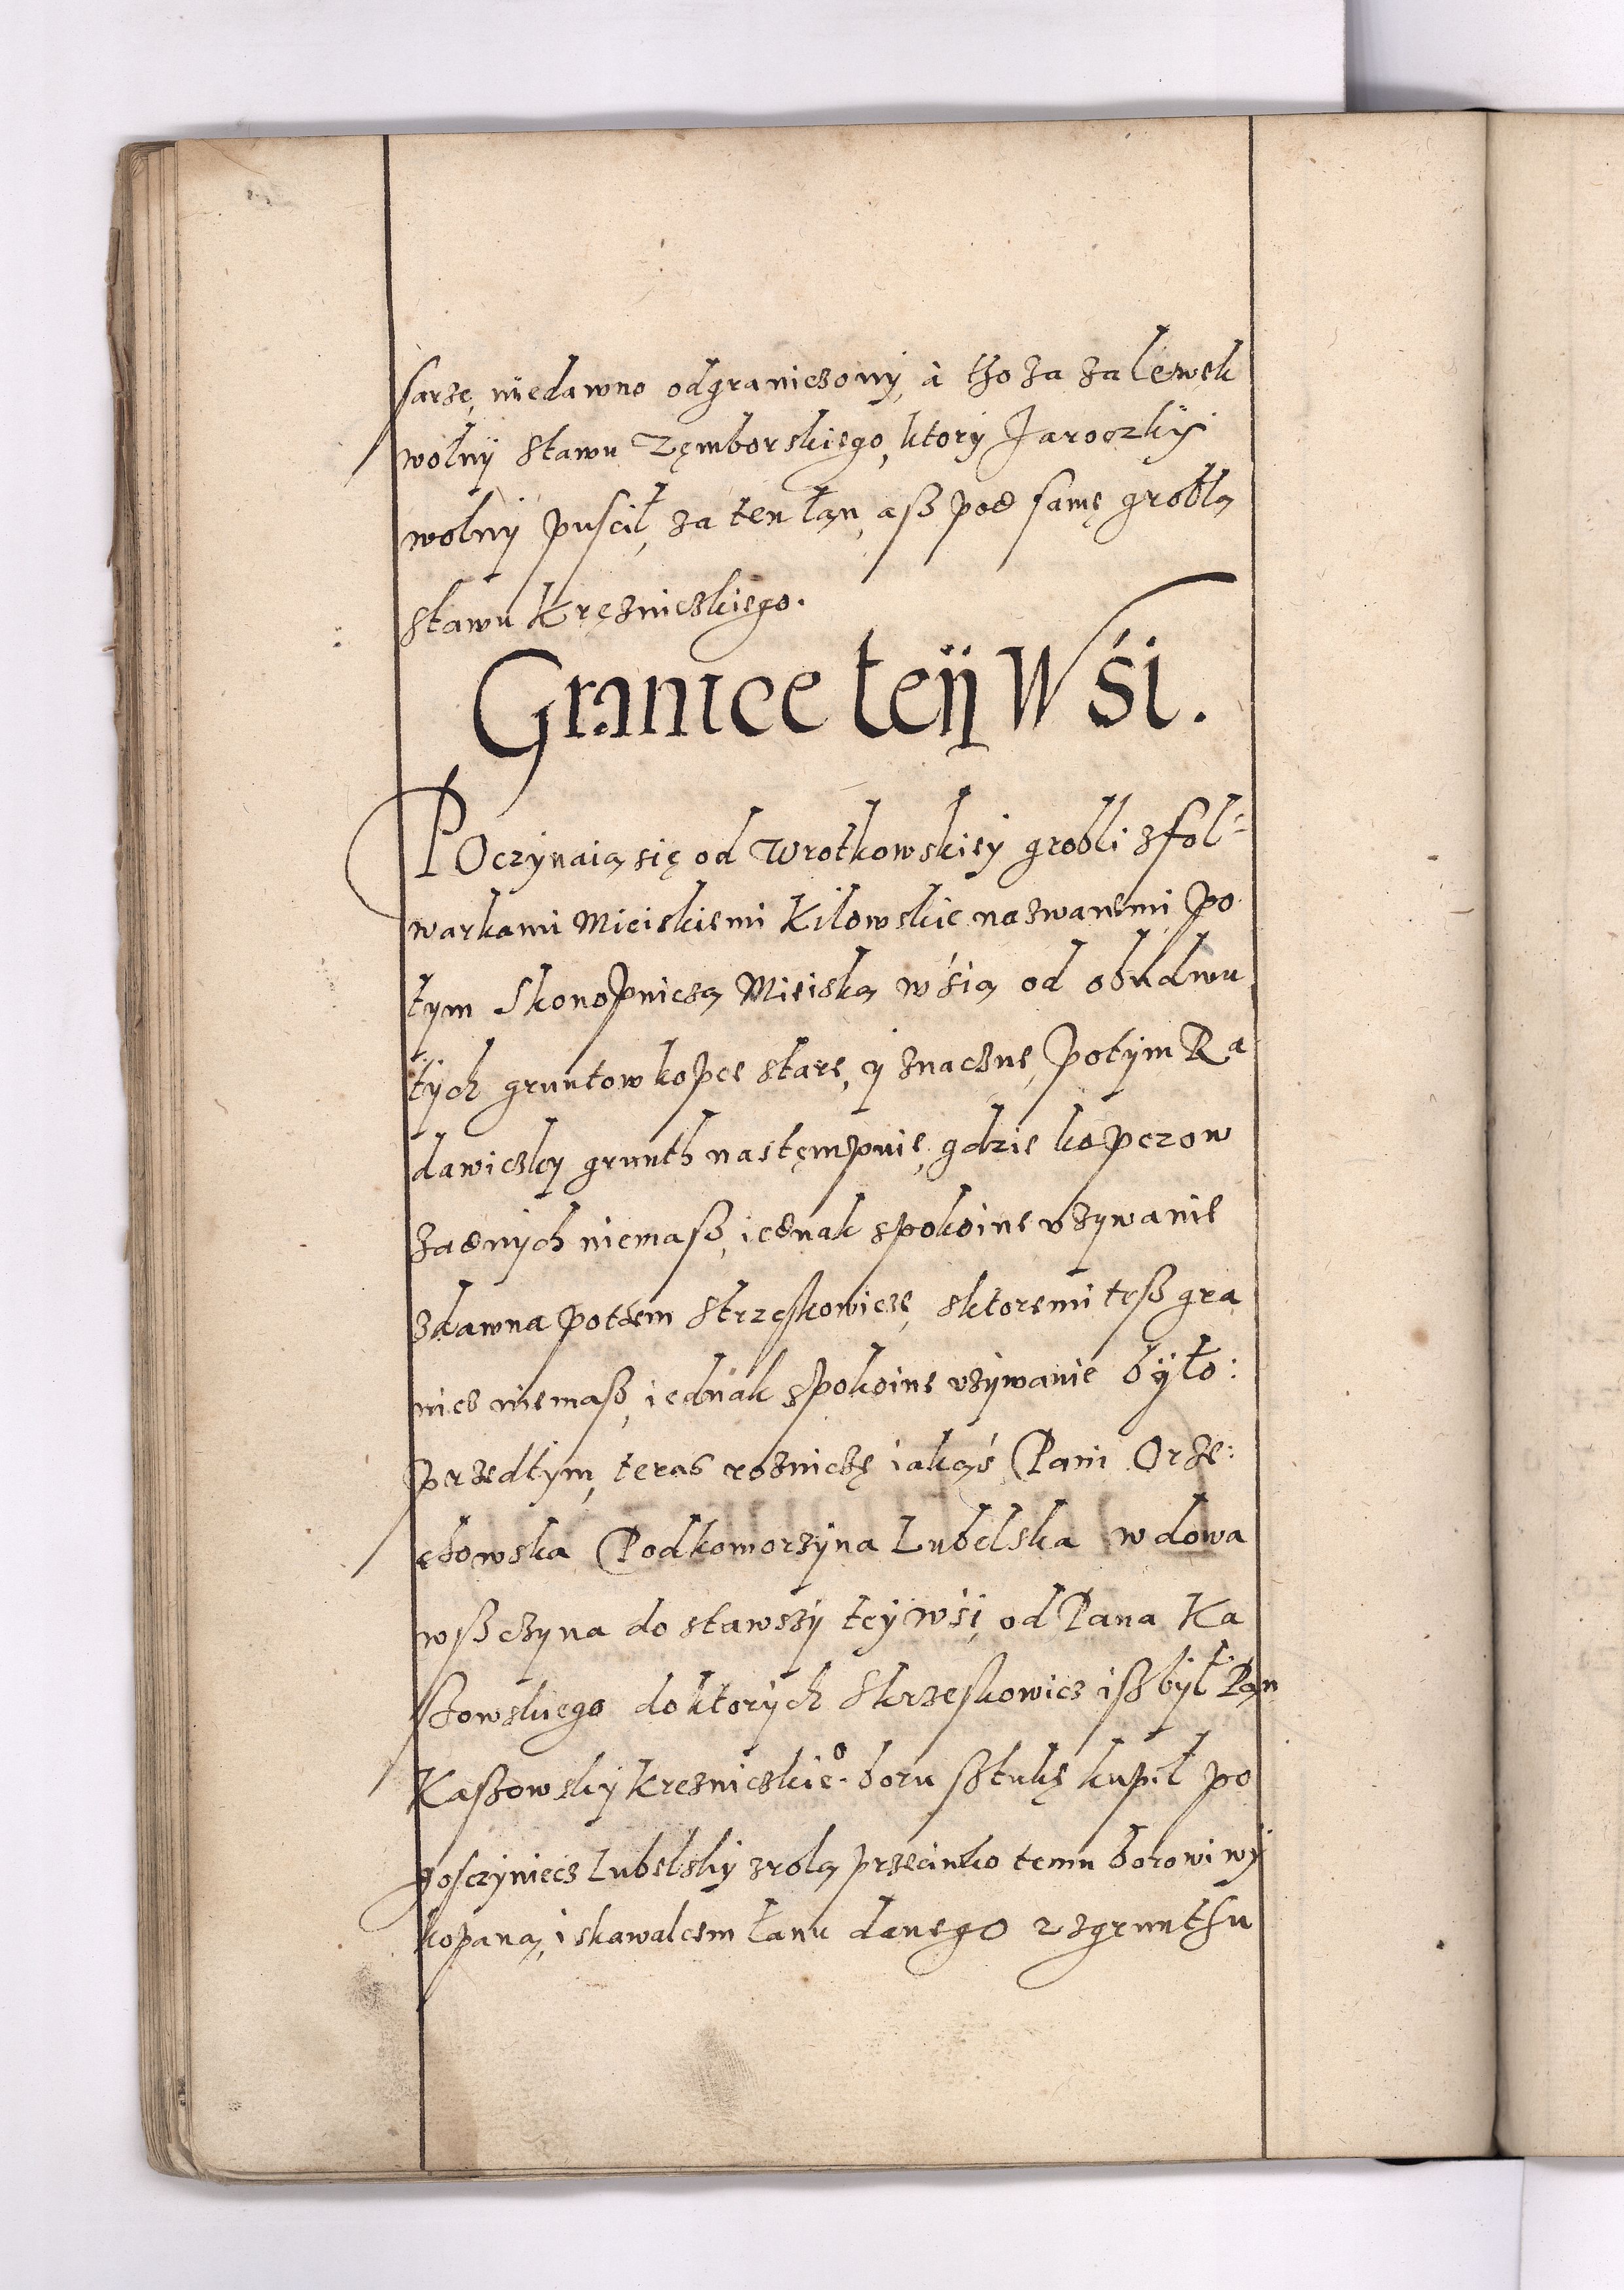 sarzę, niedawno odgraniczony, à tho za zalewek
wolny stawu Zęmborskiego, ktory Jaroczky
wolny puscił, za ten łan, asz pod samę groblą
stawu Kręznickiego.
Granice teÿ Wśi.
POczynaią się od Wrotkowskiey grobli z fol⸗
warkami Mieiskiemi Kilowskie nazwanemi, po
tym Skonopniczą Mieiską wśią od obudwu
tych gruntow kopce stare, y znaczne, potym Ra
dawiczky grunth nastęmpuie, gdzie kopczow
zadnych niemasz, iednak spokoine vzywanie
zdawna potem Strzeskowicze, sktoremi tesz gra
nicz niemasz, iednak spokoine vzywanie było:
przedtym, teras roznicżę iakąś Pani Orze:
chowska Podkomorzyna Lubelska wdowa
wszczyna dostawszy tey wśi, od Pana Ka
szowskiego doktorych Strzeskowicz isz był Pan
Kaszowsky Kreznickie⁰ boru sztukę kupił po
gosczyniecz Lubelsky zrolą przecinko temu borowi wy
kopaną, i skawalcem łanu danego zzgrunthu